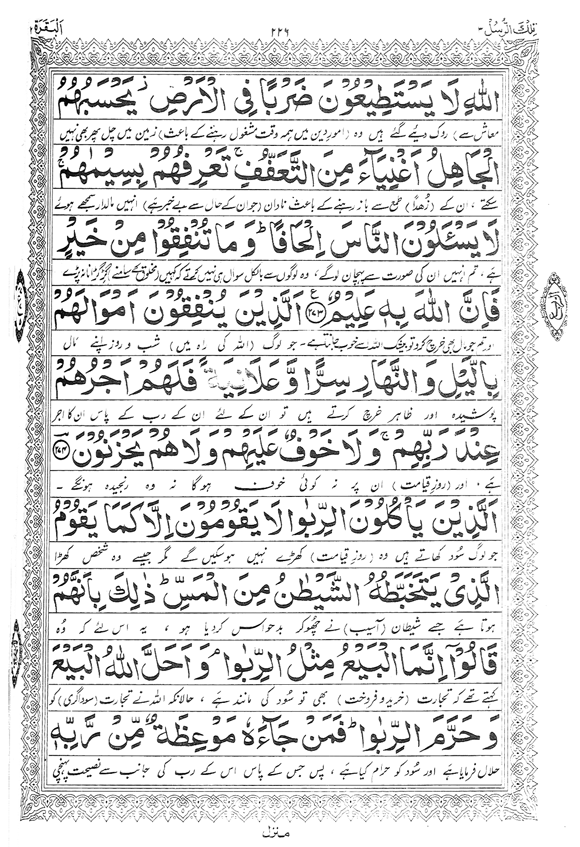 تلك الرسل ۳ ۲۲۶ البقرة ۲
اللهِ لَا يَسْتَطِيعُونَ ضَرْبًا فِى الْاَرْضِ ز يَحْسَبُهُمُ
معاش سے) روک دیئے گئے ہیں وہ (امورِ دین میں ہمہ وقت مشغول رہنے کے باعث) زمین میں چل پھر بھی نہیں
الْجَاهِلُ اَغْنِيَآءَ مِنَ التَّعَفُّفِ ج تَعْرِفُهُمْ بِسِيمٰهُمْ ج
سکتے ، ان کے (زُھداً) طمع سے باز رہنے کے باعث نادان (جو ان کے حال سے بے خبر ہے) انہیں مالدار سمجھے ہوئے
لَا يَسْـَٔلُونَ النَّاسَ اِلْحَافًا ط وَ مَا تُنْفِقُوا مِنْ خَيْرٍ
ہے ، تم انہیں ان کی صورت سے پہچان لو گے ، وہ لوگوں سے بالکل سوال ہی نہیں کرتے کہ کہیں (مخلوق کے سامنے) گڑگڑانا نہ پڑے
فَاِنَّ اللهَ بِهٖ عَلِيمٌ ع ﴿۲۷۳﴾ اَلَّذِينَ يُنْفِقُونَ اَمْوَالَهُمْ
اور تم جو مال بھی خرچ کرو تو بیشک اللہ اسے خوب جانتا ہے۔ جو لوگ (اللہ کی راہ میں) شب و روز اپنے مال
بِالَّيْلِ وَ النَّهَارِ سِرًّا وَّ عَلَانِيَةً فَلَهُمْ اَجْرُهُمْ
پوشیدہ اور ظاہر خرچ کرتے ہیں تو ان کے لئے ان کے رب کے پاس ان کا اجر
عِنْدَ رَبِّهِمْ ج وَ لَا خَوْفٌ عَلَيْهِمْ وَ لَا هُمْ يَحْزَنُونَ ﴿۲۷۴﴾
ہے ، اور (روزِ قیامت) ان پر نہ کوئی خوف ہوگا نہ وہ رنجیدہ ہونگے ۔
اَلَّذِينَ يَاْكُلُونَ الرِّبٰوا لَا يَقُومُونَ اِلَّا كَمَا يَقُومُ
جو لوگ سُود کھاتے ہیں وہ (روزِ قیامت) کھڑے نہیں ہو سکیں گے مگر جیسے وہ شخص کھڑا
الَّذِى يَتَخَبَّطُهُ الشَّيْطٰنُ مِنَ الْمَسِّ ط ذٰلِكَ بِاَنَّهُمْ
ہوتا ہے جسے شیطان (آسیب) نے چھو کر بدحواس کر دیا ہو ، یہ اس لئے کہ وُہ
قَالُوٓا اِنَّمَا الْبَيْعُ مِثْلُ الرِّبٰوا م وَ اَحَلَّ اللهُ الْبَيْعَ
کہتے تھے کہ تجارت (خرید و فروخت) بھی تو سُود کی مانند ہے ، حالانکہ اللہ نے تجارت (سوداگری) کو
وَ حَرَّمَ الرِّبٰوا ط فَمَنْ جَآءَهٗ مَوْعِظَةٌ مِّنْ رَّبِّهٖ
حلال فرمایا ہے اور سُود کو حرام کیا ہے ، پس جس کے پاس اس کے رب کی جانب سے نصیحت پہنچی
منزل